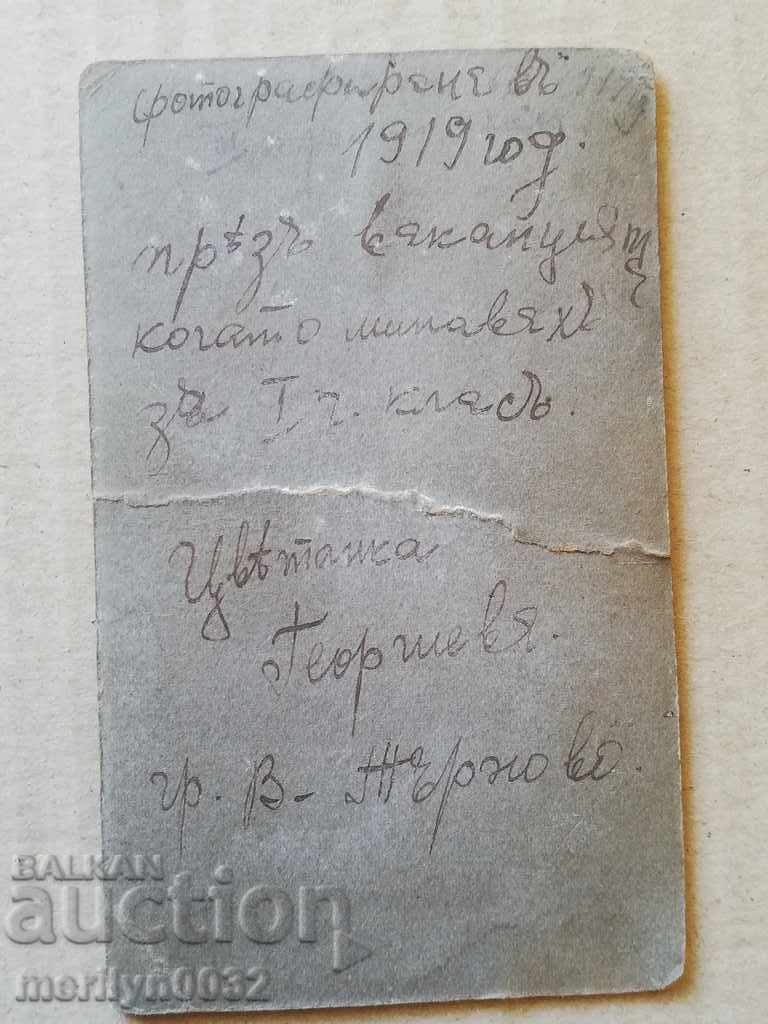 фотографиране въ
1919 год.
прѣзъ ваканцията
когато минавахъ
за I ч. класъ.
Цвѣтанка
Георгиева.
гр. В- Търново.
BALKAN
auction
merilyn0032